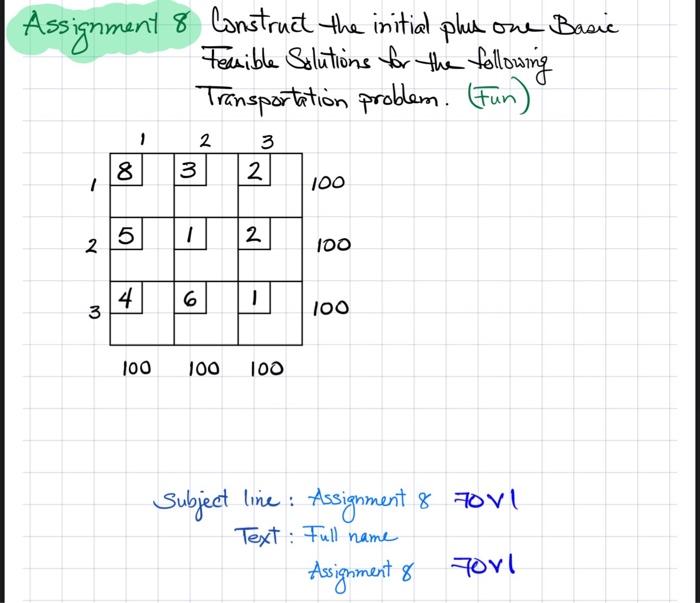 Assignment 8 Construct the initial plus one Basic
Feasible Solutions for the following
Transportation problem. (Fun)
1 2 3
1 8 3 2 100
2 5 1 2 100
3 4 6 1 100
100 100 100
Subject line : Assignment 8 70V1
Text : Full name
Assignment 8 70V1